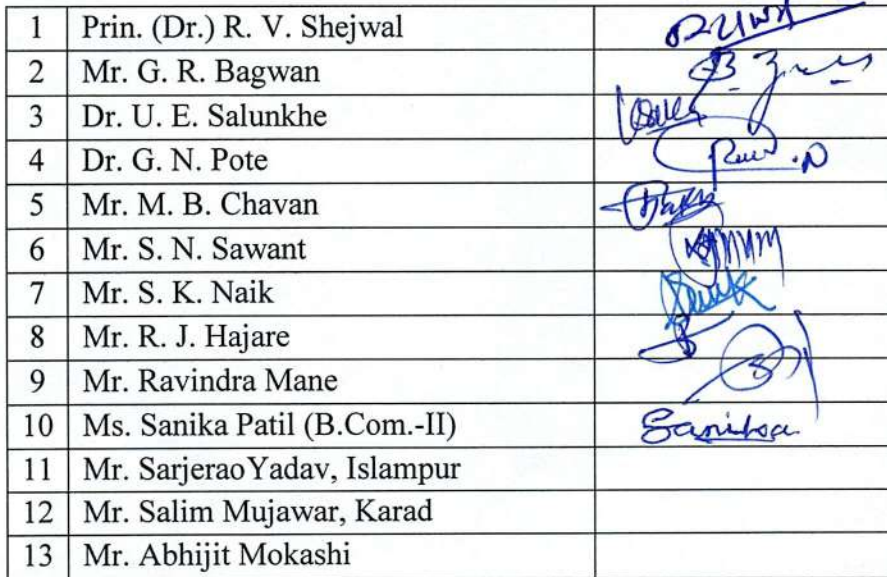 1 Prin. (Dr.) R. V. Shejwal
2 Mr. G. R. Bagwan
3 Dr. U. E. Salunkhe
4 Dr. G. N. Pote
5 Mr. M. B. Chavan
6 Mr. S. N. Sawant
7 Mr. S. K. Naik
8 Mr. R. J. Hajare
9 Mr. Ravindra Mane
10 Ms. Sanika Patil (B.Com.-II) Sanika
11 Mr. SarjeraoYadav, Islampur
12 Mr. Salim Mujawar, Karad
13 Mr. Abhijit Mokashi